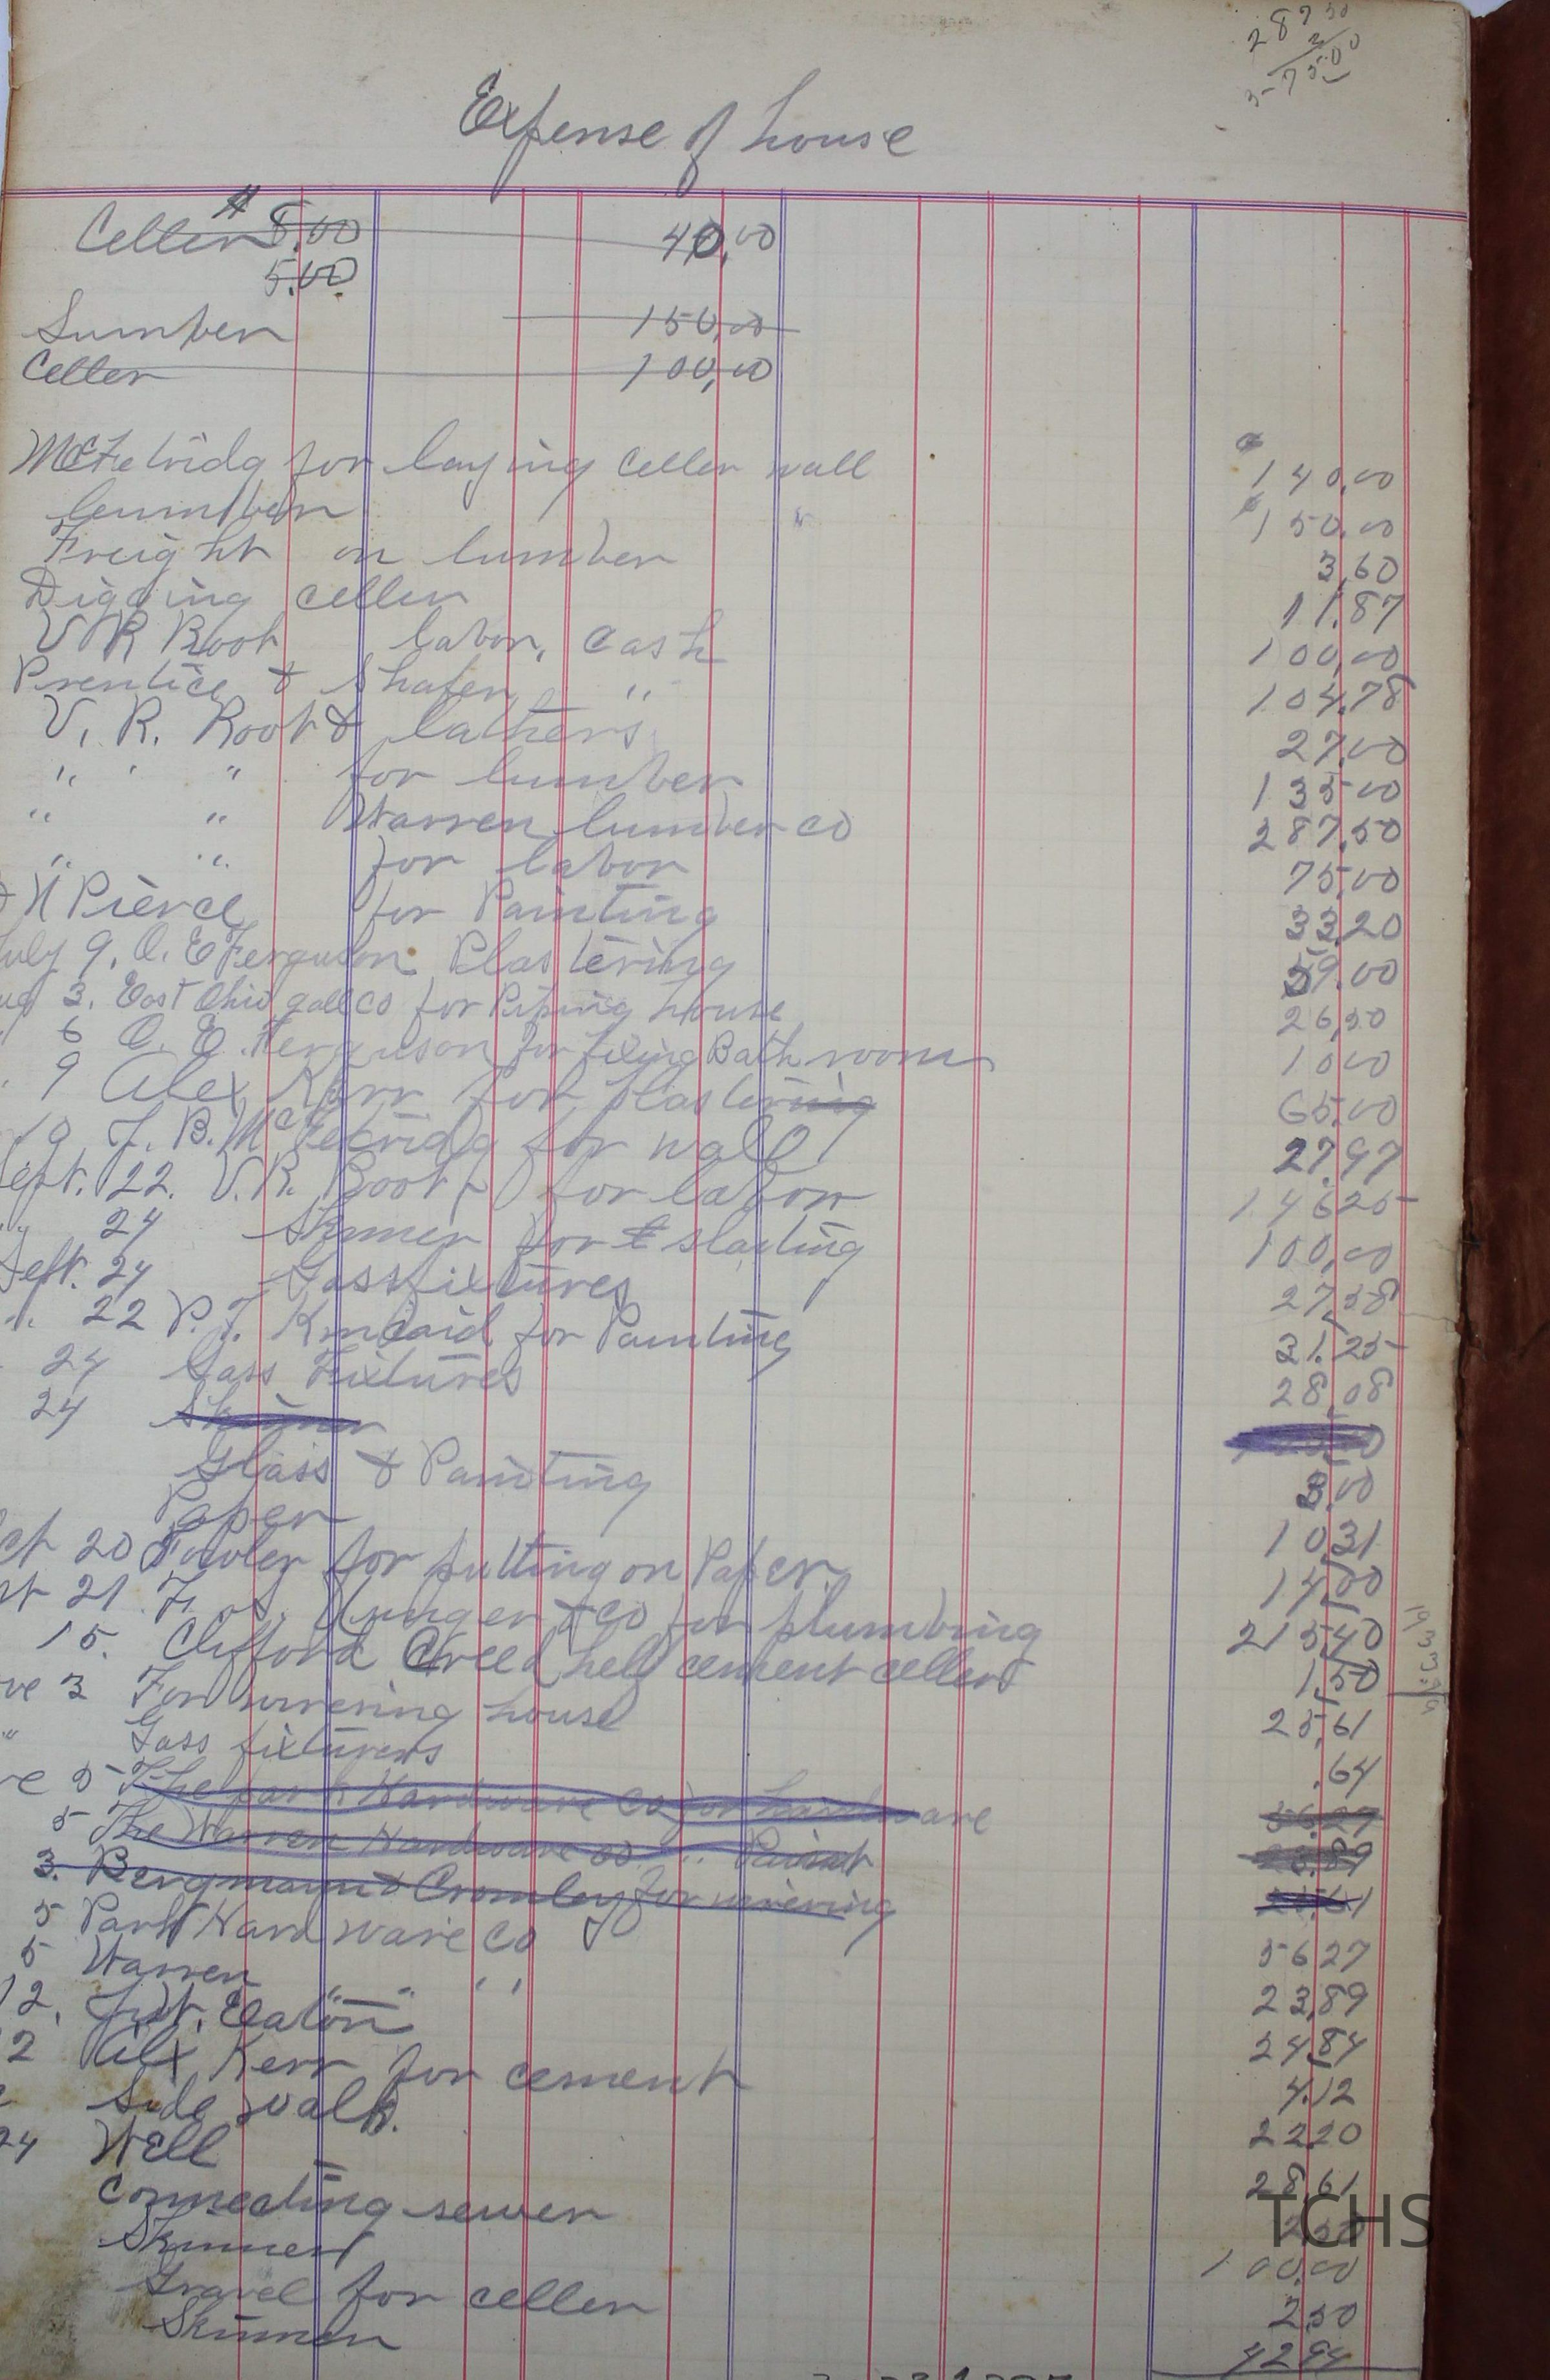 287 50
2
575.00
Expense of house
Celler 8.00 40.00
5.00
Lumber 150.00
Celler 100.00
McFetridg for laying celler wall 140.00
lumber " 150.00
Freight on lumber 3.60
Digging celler 11.87
V R Root labor, cash 100.00
Prentice & Shafer " 104.78
V. R. Root & lathers 27.00
" " for lumber 135 00
" " Warren lumber co 287.50
" " for labor 75.00
H Pierce for Painting 33.20
July 9. O. E Ferguson Plastering 59.00
3. East Ohio gass co for Piping house 26.50
6 O. E. Ferguson for fixing Bath room 10 00
9 Alex Kerr for plastering 65.00
19 J. B. McFetridg for wall 27.97
Sept. 22. V. R. Root for labor 146 25
" 24 Skinner for slaiting 100.00
Sept. 24 Gass fixtures 27.58
" 22 P. J. Kincaid for Painting 31.25
24 Gass Fixtures 28.08
24 Skinner
Glass & Painting 3.00
Paper 10 31
20 Fowler for putting on Paper. 14.00
21 F. Unger & co for plumbing 215 40
15. Clifford Creed help cement celler 1.50
3 For wirering house 25.61
" Gass fixturers .64
5 The Park Hardware Co for hardware 56.27
5 The Warren Hardware co. " Paint 23.89
3. Bergmann & Cromley for wirering 25.61
5 Park Hard ware Co 56 27
5 Warren " " 23.89
12. Eaton 24.84
2 Alx Kerr for cement 4.12
Side walk. 22 20
24 Well 28.61
connecting sewer 2.50
Skinner 100.00
Gravel for celler 2.50
Skinner 42 94
TCHS